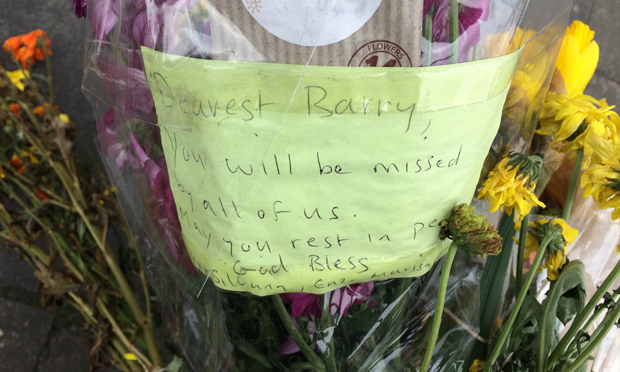 FLOWERS
Dearest Barry,
You will be missed
by all of us.
May you rest in pe
God Bless